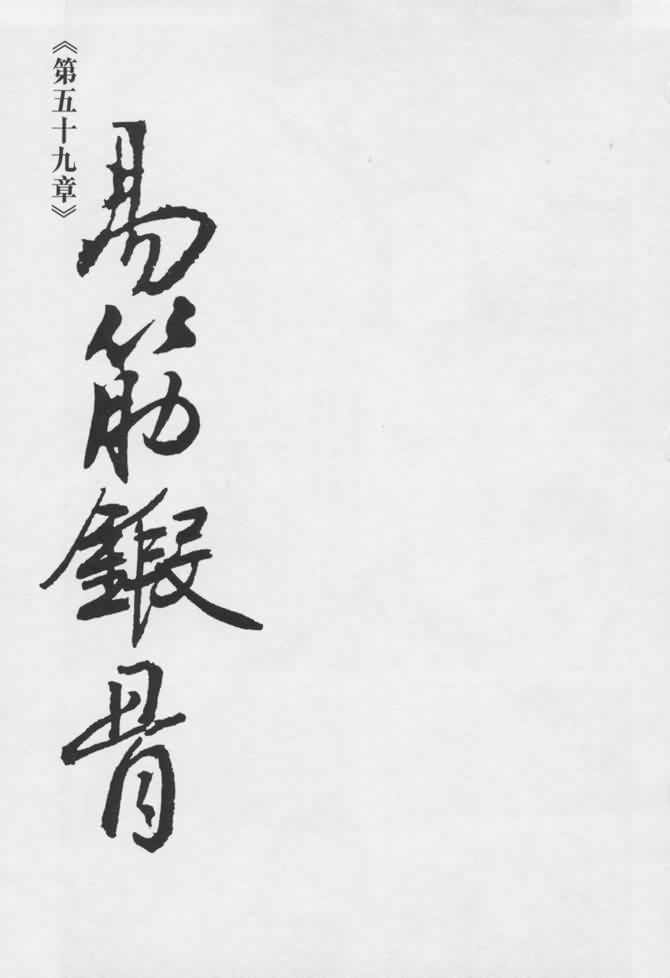 《第五十九章》
易筋鍛骨